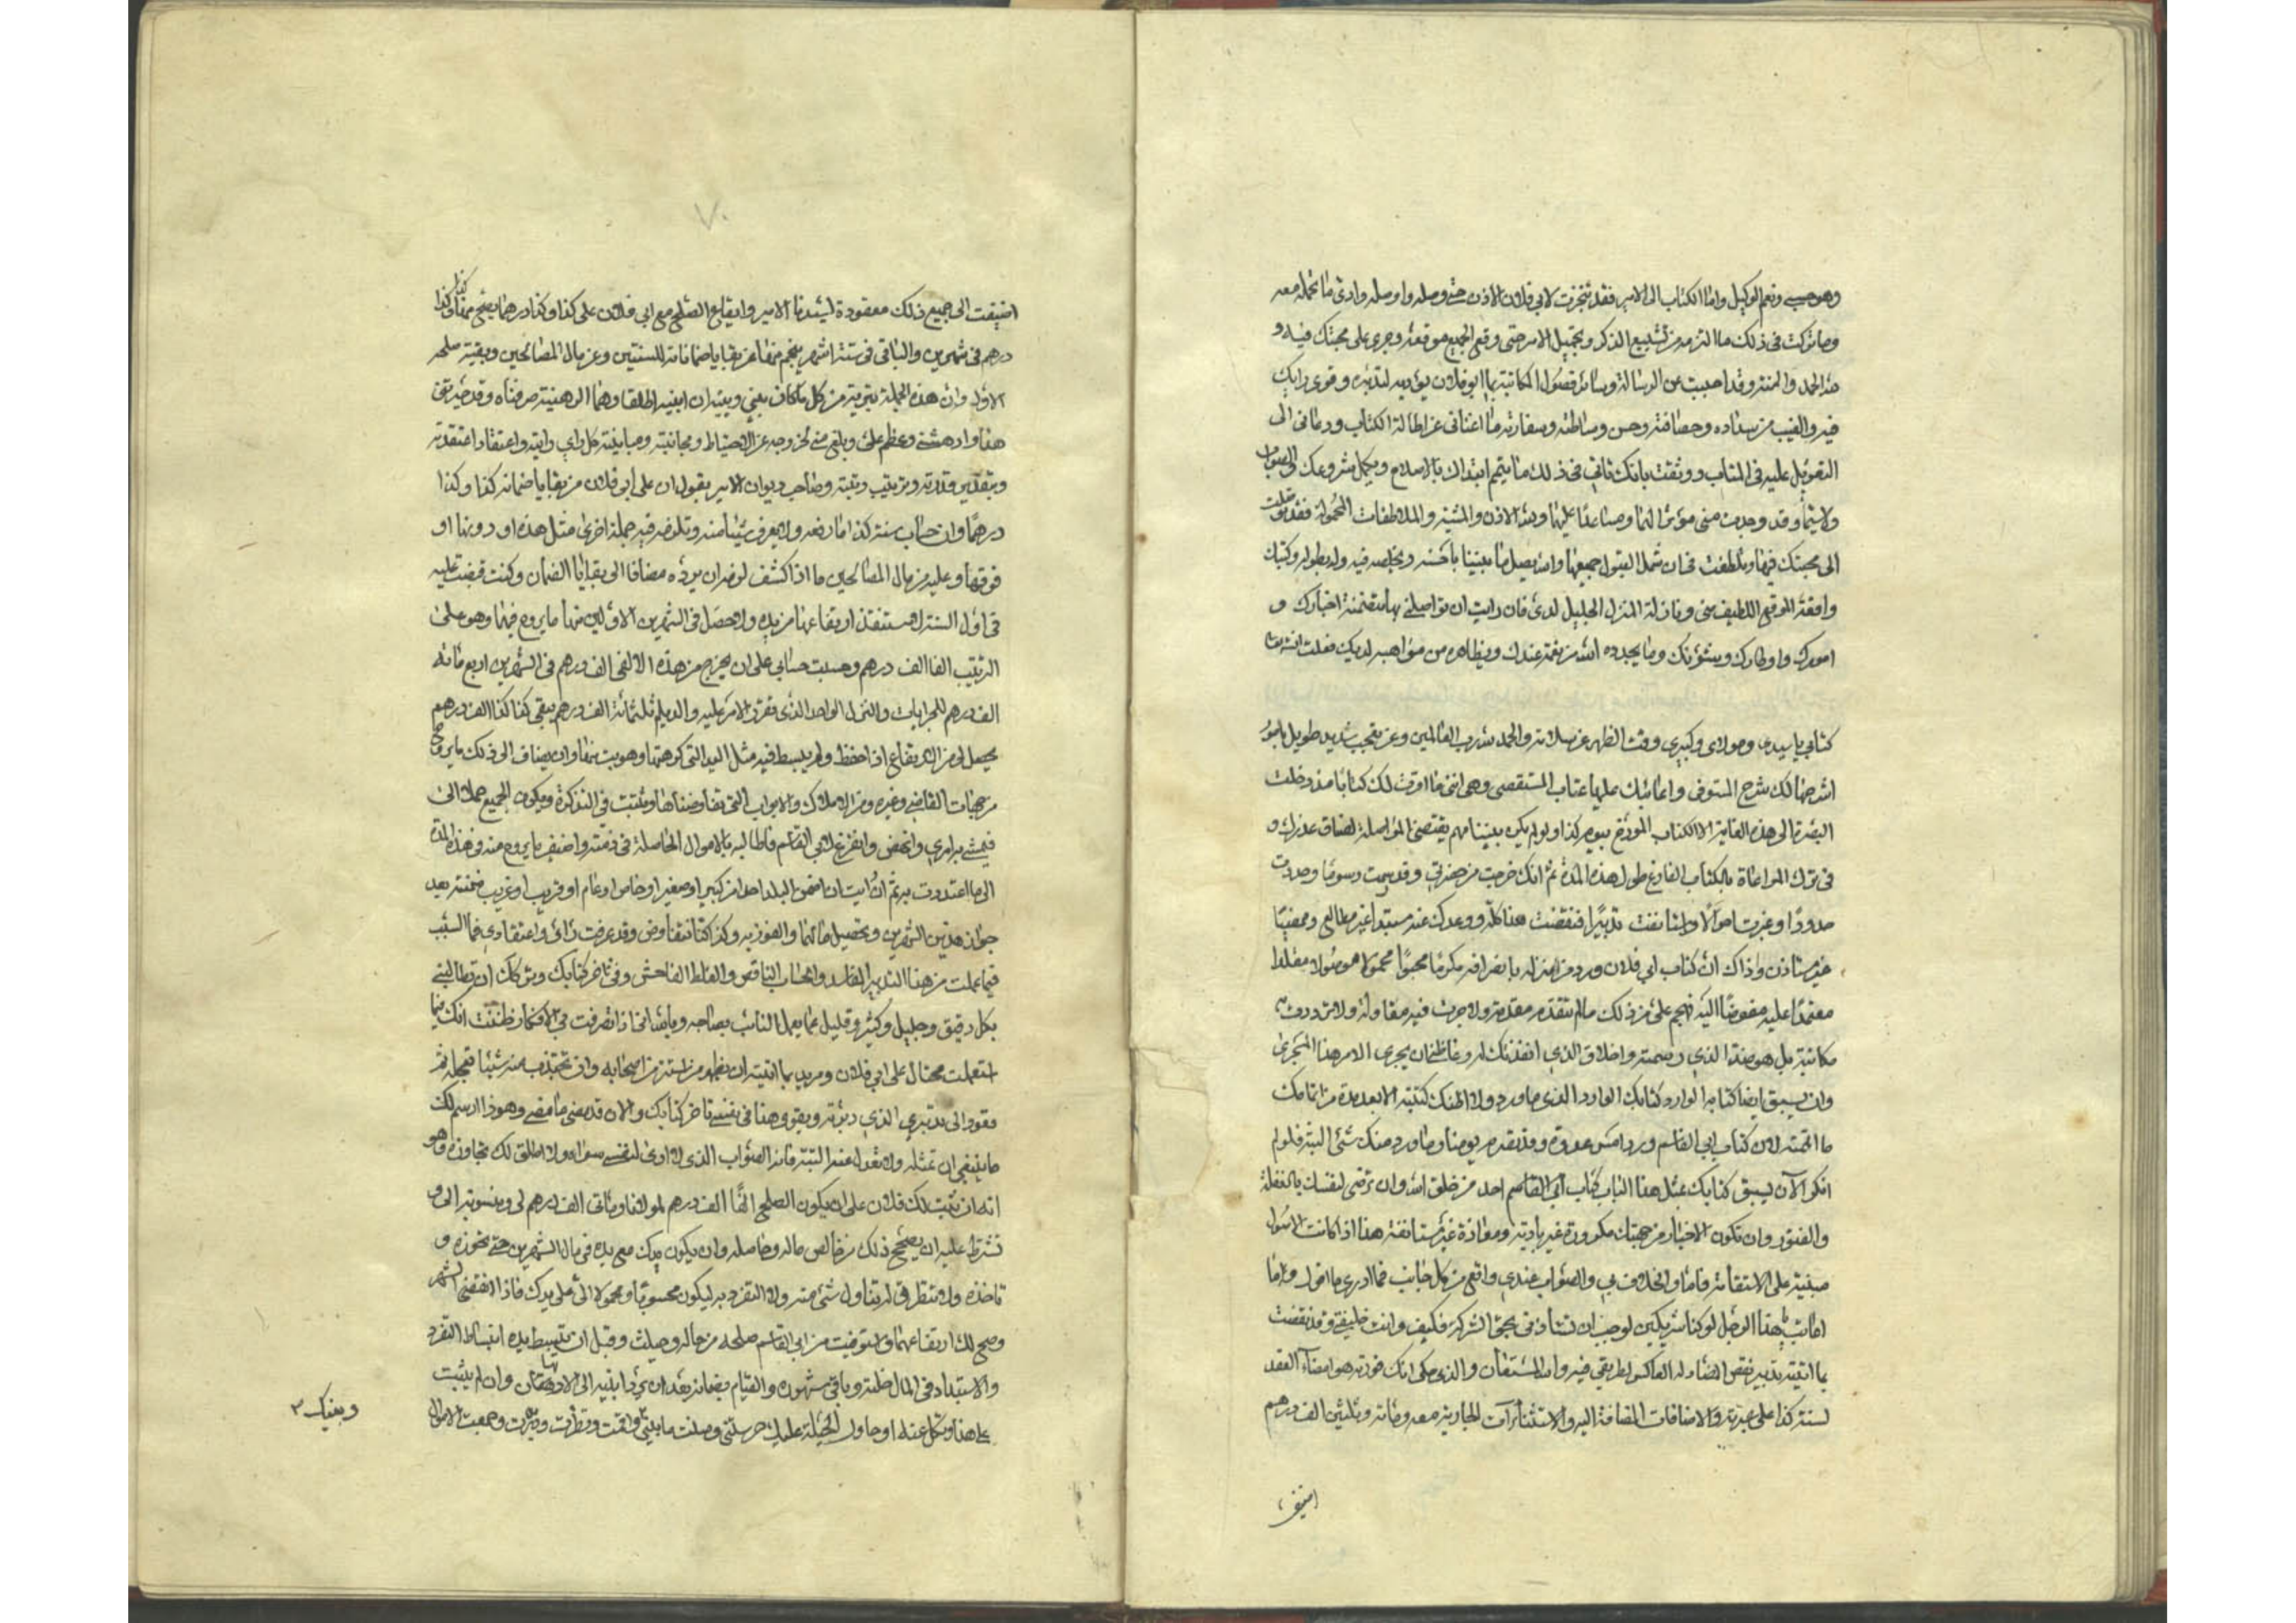 وهو حسبي ونعم الوكيل واما الكتاب الى الامير فقد تنجزت لابي فلان الاذن حتى وصل واوصله وادى ما تحمله معه
وما تركت في ذلك ما التزمه من تشييع الذكر وتجميل الامر حتى وقع الجميع موقعه وجرى على محبتك فيه و
لله الحمد والمنة وقد اجبت عن الرسالة وسائر فصول المكاتبة بما ابو فلان يؤديه لتدبره وقوى رأيك
فيه والفيت من سداده وحصافته وحسن وساطته وسفارته ما اغناني عن اطالة الكتاب ودعاني الى
التعويل عليه في المناب ووثقت بانك تأتي في ذلك ما يتم ابتداك بالاسلام ويكمل مشروعك في الصواب
ولا سيما وقد وجدت مني مؤثرا لها ومساعدا عليها ولله الاذن والمشية والملاطفات المحمولة فقد توصلت
الى محبتك فيها وتلطفت في ان شمل القبول جميعها والله يصل ما بيننا باحسنه ويخلصه فيه ولديه وكتبك
واقعة الموقع اللطيف مني ونازلة المنزل الجليل لدي فان رأيت ان تواصلني بها متضمنة اخبارك و
امورك واوطارك وشؤنك وما يجدده الله من نعمة عندك ويظاهره من مواهبه لديك فعلت ان شاء الله
كتابي يا سيدي ومولاي وكبيري وقت الظهر عن سلامة والحمد لله رب العالمين وعن تعجب شديد طويل بامور
اشرحها لك شرح المستوفي واعاتبك عليها عتاب المستقصي وهي انني ما اقرت لك كتابا منذ دخلت
البصرة الى هذه الغاية الا الكتاب المورخ بيوم كذا ولو لم يكن بيننا مهم يقتضي المواصلة لضاق عذرك و
في ترك المراعاة بالكتاب الفارغ طول هذه المدة ثم انك خرجت من حضرتي وقد رسمت رسوما وحددت
حدودا وعزرت اصولا واستأنفت تدبيرا فنقضت هذا كله ووعدك عنه مستبدا غير مطالع وممضيا
غير مستاذن وذاك ان كتاب ابي فلان ورد من منزله بانصرافه مكرما محبوا محمولا موصولا مقلدا
معتمدا عليه مفوضا اليه فهجم علي من ذلك ما لم تتقدمه مقدمة ولا جرت فيه مقاولة ولا ترددت به
مكاتبة بل هو ضد الذي رسمته وخلاف الذي انفذتك له وغاظني ان يجري الامر هذا المجرى
وان يسبق ايضا كتابه الوارد كتابك الوارد الذي ما ورد ولا اظنك كتبته الا بعد مدة من اتمامك
ما اتممته لان كتاب ابي القاسم ورد امس غدوة وقد تقدمه يومنا وما ورد منك شئ البتة فلو لم
انكر الا ان يسبق كتابك بمثل هذا الباب كتاب ابي القاسم احد من خلق الله وان ترضى لنفسك بالغفلة
والفتور وان تكون الاخبار من جهتك مكرورة غير بادية ومعادة غير مستانفة هذا اذا كانت الامور
مبنية على الاستقامة فاما والخلاف بي والصواب عندي واقع من كل جانب فما ادري ما اقول واما
امانتي هذا الوصل لو كنا شريكين لوجب ان تستأذن بحق الشركة فكيف وانت خليفتي وقد نقضت
بما اتيته تدبيري نقض المضاد له العاكس لطريقي فيه والله المستعان والذي حكى انك قررته هو امضاء العقد
لسنة كذا على عبرته والاضافات المضافة اليه والاستثناآت الجارية معه ومائة وثلثين الف درهم
اضيفت
٧٠
اضيفت الى جميع ذلك معقودة لسيدنا الامير وايقاع الصلح مع ابي فلان على كذا وكذا درهما يصح منها كذا وكذا
درهم في شهرين والباقي في ستة اشهر ينجم منها عن بقايا ضماناته للسنتين وعن مال المصالحين وبقية صلحه
الاول وان هذه الجملة تبرية من كل ما كان بيني وبينه ان ابنيه اطلقا وهما الرهينة صرفناه وقد حيرتني
هذا وادهشني وعظم علي وبلغ مني لخروجه عن الاحتياط ومجانبته ومباينته كل راي رايته واعتقاد اعتقدته
وبتقدير قدرته وترتيب رتبته وصاحب ديوان الامير يقول ان على ابي فلان من بقايا ضمانه كذا وكذا
درهما وان حساب سنة كذا ما رفعه ولا يعرف شيئا منه وتلزمه فيه جملة اخرى مثل هذه او دونها او
فوقها وعليه من مال المصالحين ما اذا كشف لزمه ان يرده مضافا الى بقايا الضمان وكنت قبضت عليه
في اول السنة لاستنقذ ارتفاعها من يده ولاحصل في الشهرين الاولين منها ما يروج فيهما وهو على
الترتيب الفا الف درهم وحسبت حسابي على ان يخرج من هذه الالفي الف درهم في الشهرين اربع مائة
الف درهم للجرايات والنزل الواحد الذي فقري الامر عليه والديلم ثلثمائة الف درهم يبقى كذا كذا الف درهم
يحصل لي من الارتفاع اذا حفظ ولم يبسط فيه مثل اليد التي كرهتها وهربت منها وان يضاف الى ذلك ما يروج
من جهات القاضي وغيره ومن الاملاك والابواب التي تفاوضناها وثبتت في التذكرة ويكون الجميع حملا الي
فيمشي به امري وانهض واتفرغ لابي القاسم فاطالبه بالاموال الحاصلة في ذمته واضيف ما يروج منه في هذه المدة
الى ما اعتددت به ثم ان رأيت ان اضمن البلد احدا من كبير او صغير او خاص او عام او قريب او غريب ضمنته بعد
جواز هذين الشهرين وتحصيل مالهما والفوز به وكذا كنا نتفاوض وقد عرفت رائي واعتقادي فما السبب
فيما عملت من هذا التدبير الفاسد والحساب الناقص والغلط الفاحش وفي تأخر كتابك ومن شكك ان تطالبني
بكل دقيق وجليل وكثير وقليل عما يعمل النائب بصاحبه وبائساني اذا تصرفت بي الافكار ظننت انك فيما
استعملت محتال على ابي فلان ومريد بما اتيته ان يظهر من استتر من اصحابه وان تجتذب منه شيئا تتعجله ثم
تعود الى تدبيري الذي دبرته ويقوي هذا في نفسي تأخر كتابك والان قد مضى ما مضى وهو ذا ارسم لك
ما ينبغي ان تمتثله ولا تعدل عنه البتة فانه الصواب الذي لا ارى لنفسي سواه ولا اطلق لك تجاوزه وهو
انه ان ثبت لك فلان على ان يكون الصلح الفا الف درهم لمولانا ومائتي الف درهم لي ومنسوبة الي و
تشرط عليه ان يصحح ذلك من خالص ماله وحاصله وان يكون يدك مع يده في مال الشهرين حتى تحوزه و
تاخذه ولا تتطرق له بتناول شئ منه ولا التفرد به ليكون محسوبا ومحمولا الي على يدك فاذا انقضى الشهران
وصح لك ارتفاعهما واستوفيت من ابي القاسم صلحه من ماله وحيلته وقبل ان تنبسط يده انبساط التفرد
والاستبداد في المال خليته وباقي شهوره والقيام بضمانه بعد ان يرد ابنيه الى الارتهان وان لم يثبت
على هذا ونكل عنه او حاول الحيلة عليك حرستني وصلحت ما بيني وافقت ونظرت ودبرت وجمعت الاموال
وبينك